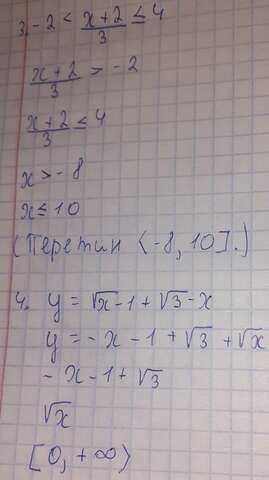 3. -2 < (x+2)/3 ≤ 4
(x+2)/3 > -2
(x+2)/3 ≤ 4
x > -8
x ≤ 10
(Перетин ⟨-8, 10].)
4. y = √x-1 + √3-x
y = -x-1+√3+√x
-x-1+√3
√x
[0, +∞)